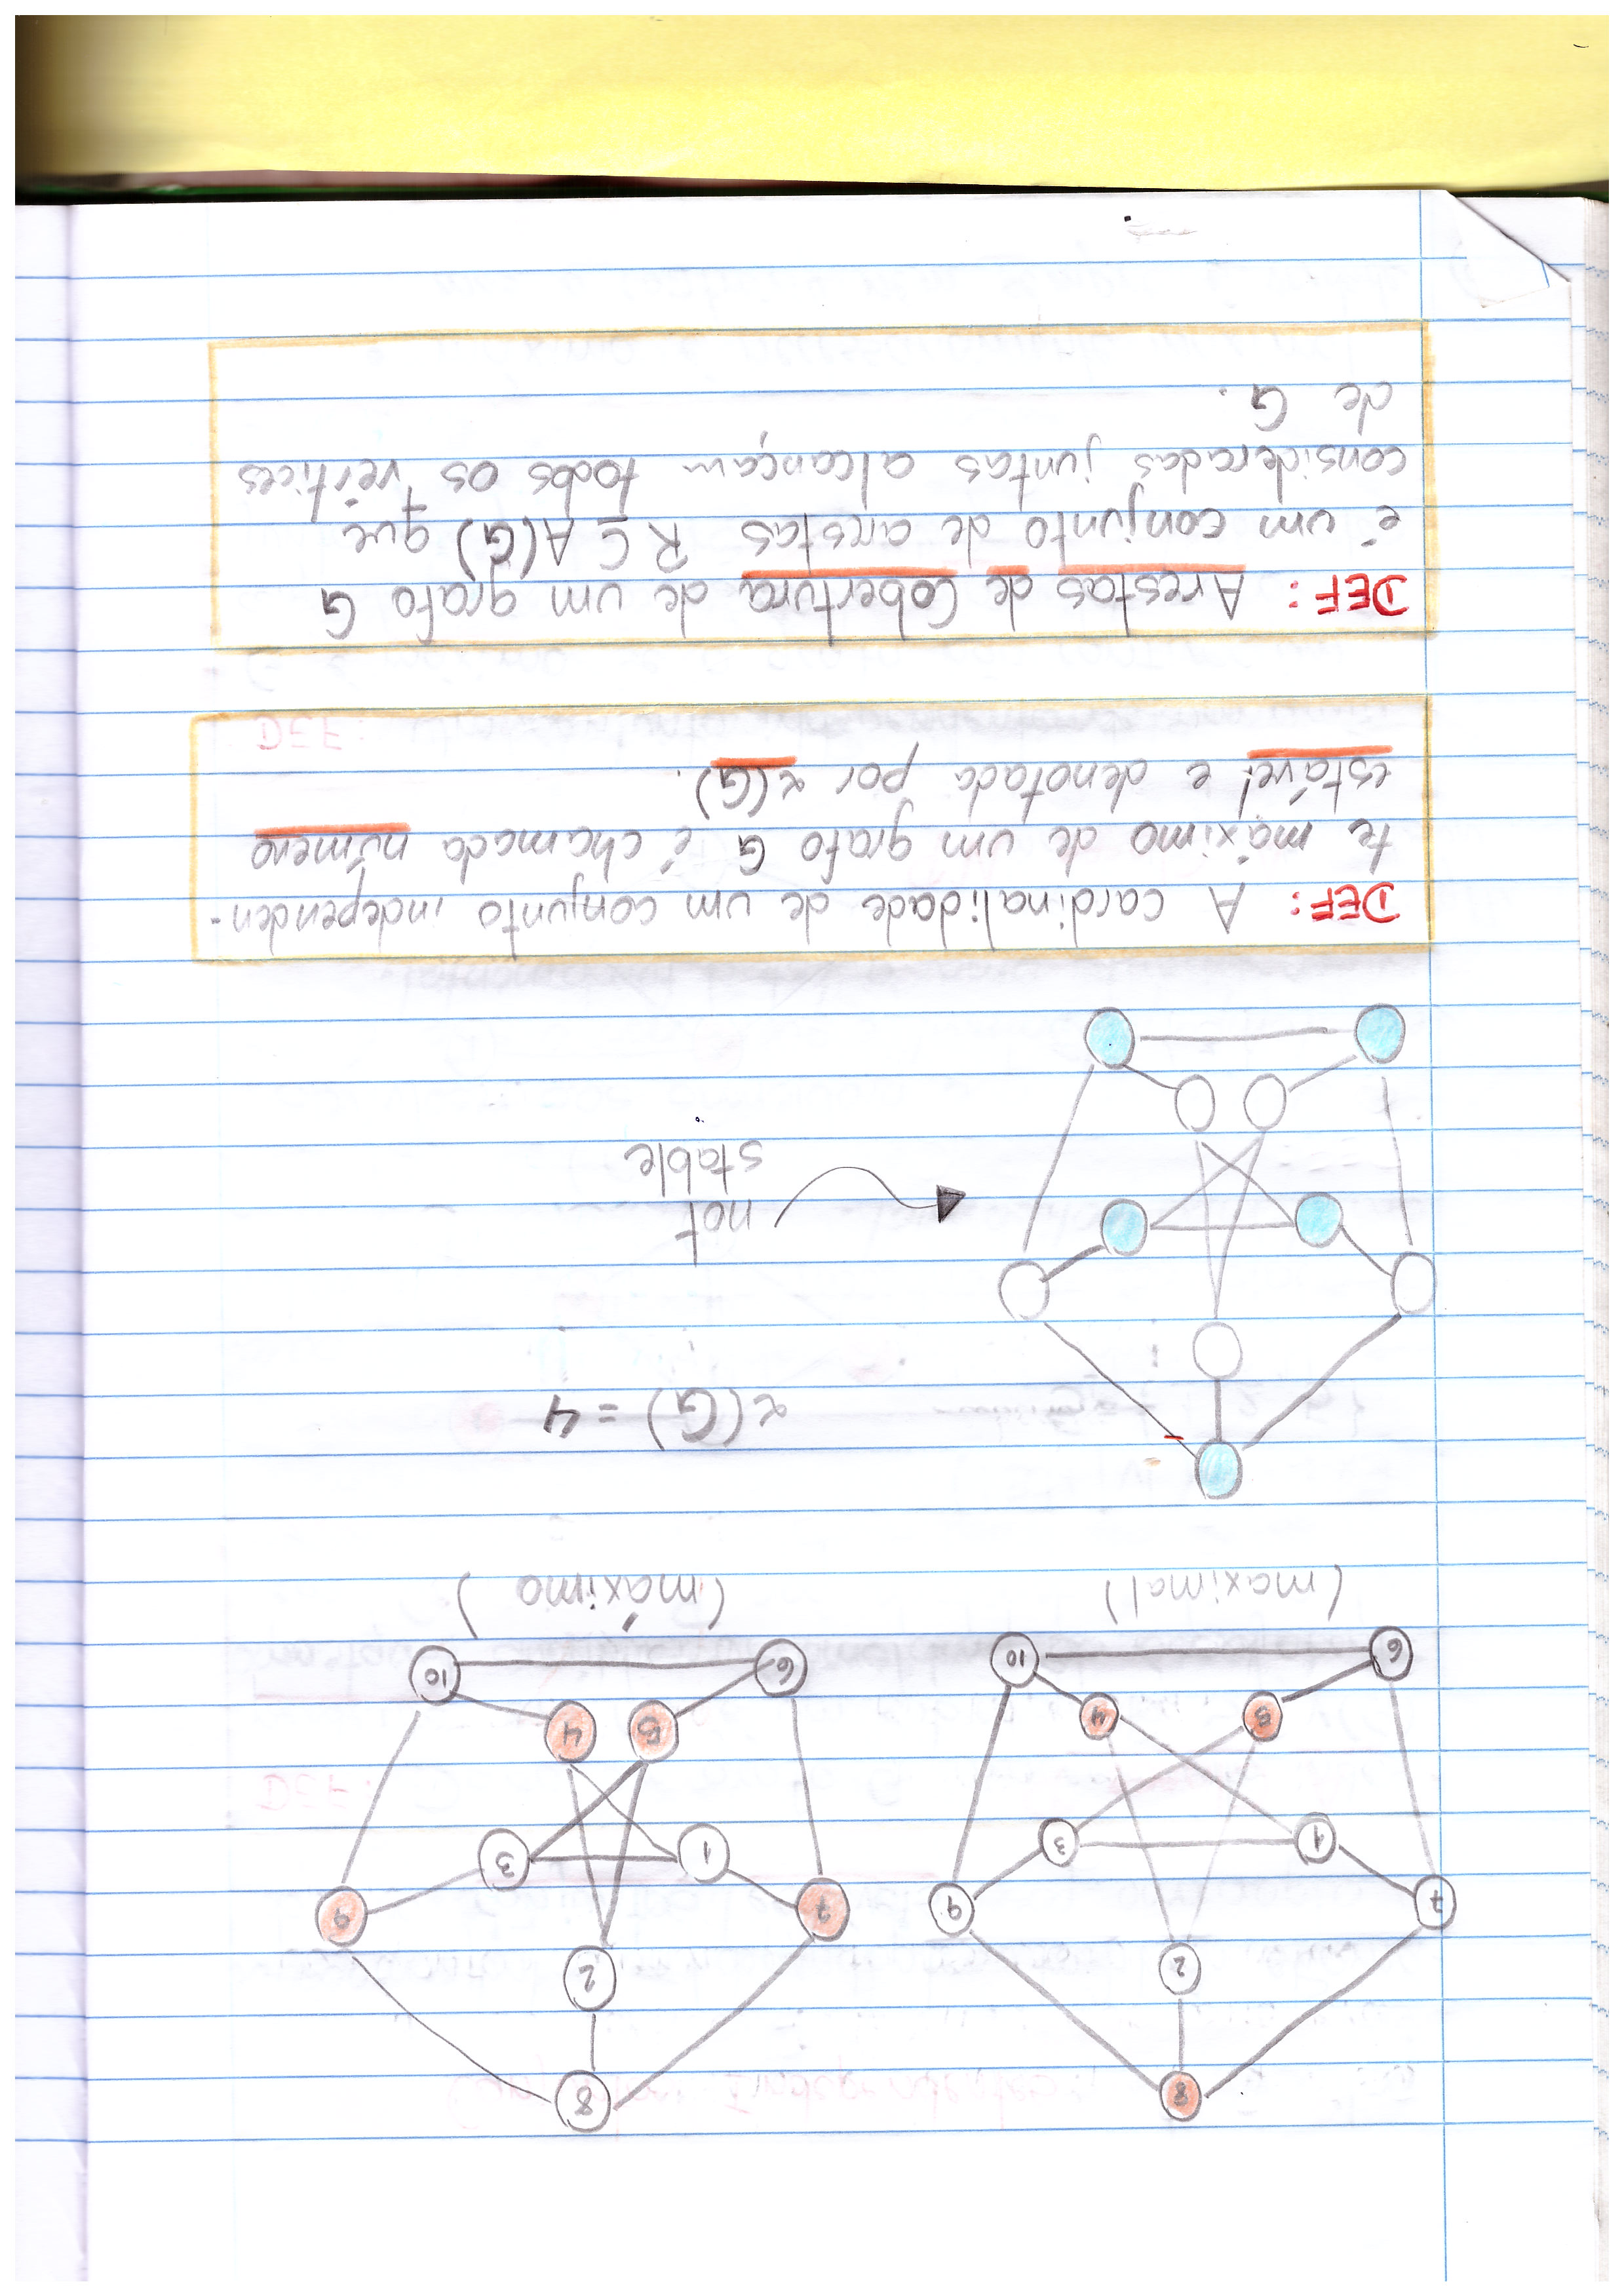 8 8
2 2
7 9 7 9
1 3 1 3
5 4 5 4
6 10 6 10
(maximal) (máximo)
α(G) = 4
not
stable
DEF: A cardinalidade de um conjunto independen-
te máximo de um grafo G é chamada número
estável e denotada por α(G).
DEF: Arestas de Cobertura de um grafo G
é um conjunto de arestas R ⊆ A(G) que
consideradas juntas alcançam todos os vértices
de G.